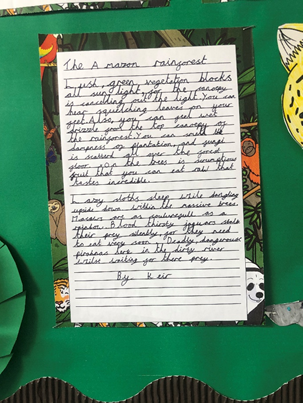 The Amazon rainforest
Lush, green vegetation blocks
all sun light, for the canopy
is cancelling out the light. You can
hear squelching leaves on your
feet. Also, you can feel wet
drizzle from the top canopy of
the rainforest. You can smell the
dampness of plantation, and fungi
is scattered all over the forest
floor. On the trees is scrumptious
fruit that you can eat that
tastes incredible.
Lazy sloths sleep while dangling
upside down within the massive trees.
Macaws are as as a
rainbow. Blood thirsty jaguars stalk
their prey silently, for they need
to eat very soon. Deadly, dangerous
piranhas here in the dirty river
whilst waiting for there prey.
By Keir